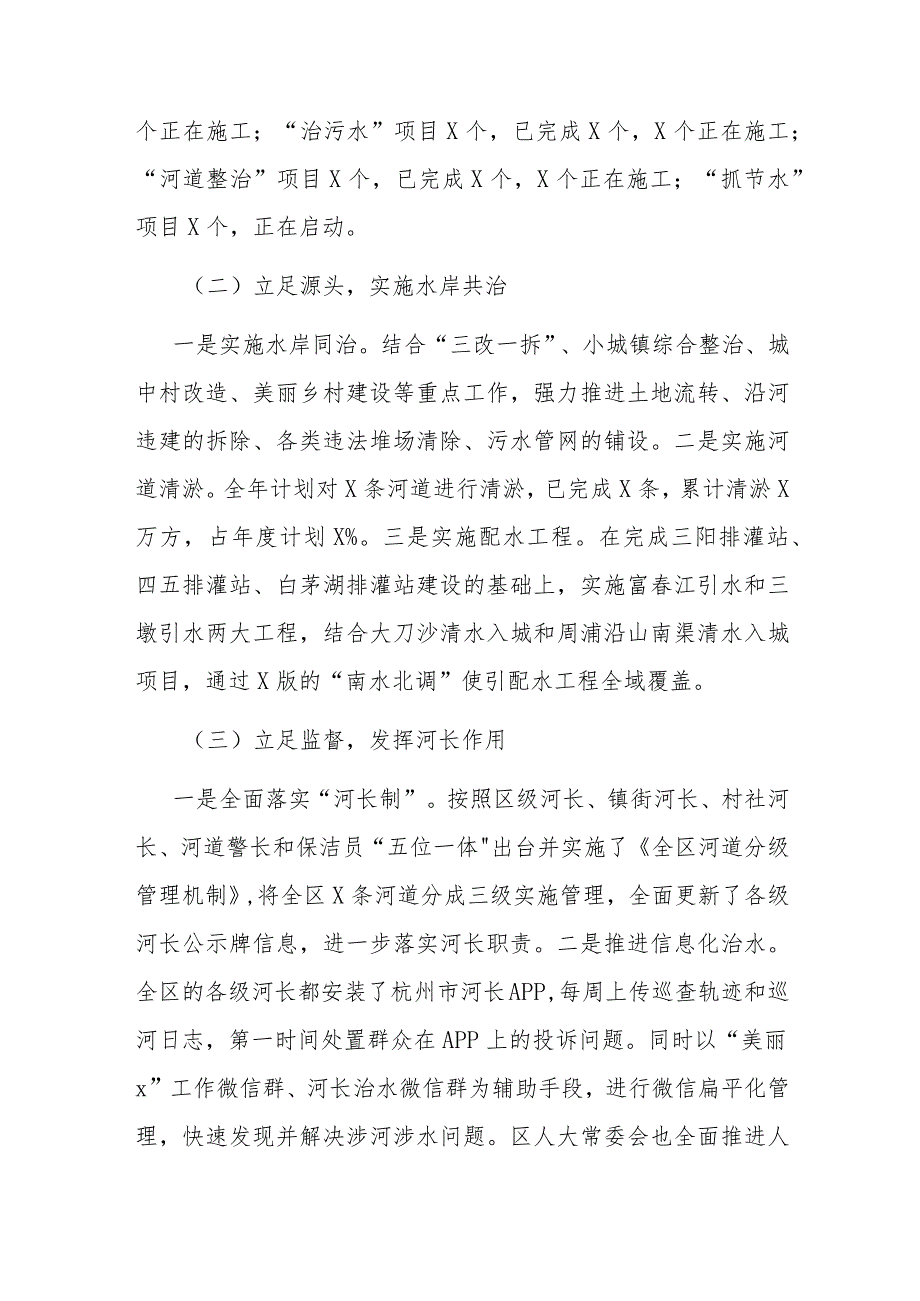 个正在施工；“治污水”项目X个，已完成X个，X个正在施工；
“河道整治”项目X个，已完成X个，X个正在施工；“抓节水”
项目X个，正在启动。
（二）立足源头，实施水岸共治
一是实施水岸同治。结合“三改一拆”、小城镇综合整治、城
中村改造、美丽乡村建设等重点工作，强力推进土地流转、沿河
违建的拆除、各类违法堆场清除、污水管网的铺设。二是实施河
道清淤。全年计划对X条河道进行清淤，已完成X条，累计清淤X
万方，占年度计划X%。三是实施配水工程。在完成三阳排灌站、
四五排灌站、白茅湖排灌站建设的基础上，实施富春江引水和三
墩引水两大工程，结合大刀沙清水入城和周浦沿山南渠清水入城
项目，通过X版的“南水北调”使引配水工程全域覆盖。
（三）立足监督，发挥河长作用
一是全面落实“河长制”。按照区级河长、镇街河长、村社河
长、河道警长和保洁员“五位一体"出台并实施了《全区河道分级
管理机制》,将全区X条河道分成三级实施管理，全面更新了各级
河长公示牌信息，进一步落实河长职责。二是推进信息化治水。
全区的各级河长都安装了杭州市河长APP,每周上传巡查轨迹和巡
河日志，第一时间处置群众在APP上的投诉问题。同时以“美丽
x”工作微信群、河长治水微信群为辅助手段，进行微信扁平化管
理，快速发现并解决涉河涉水问题。区人大常委会也全面推进人